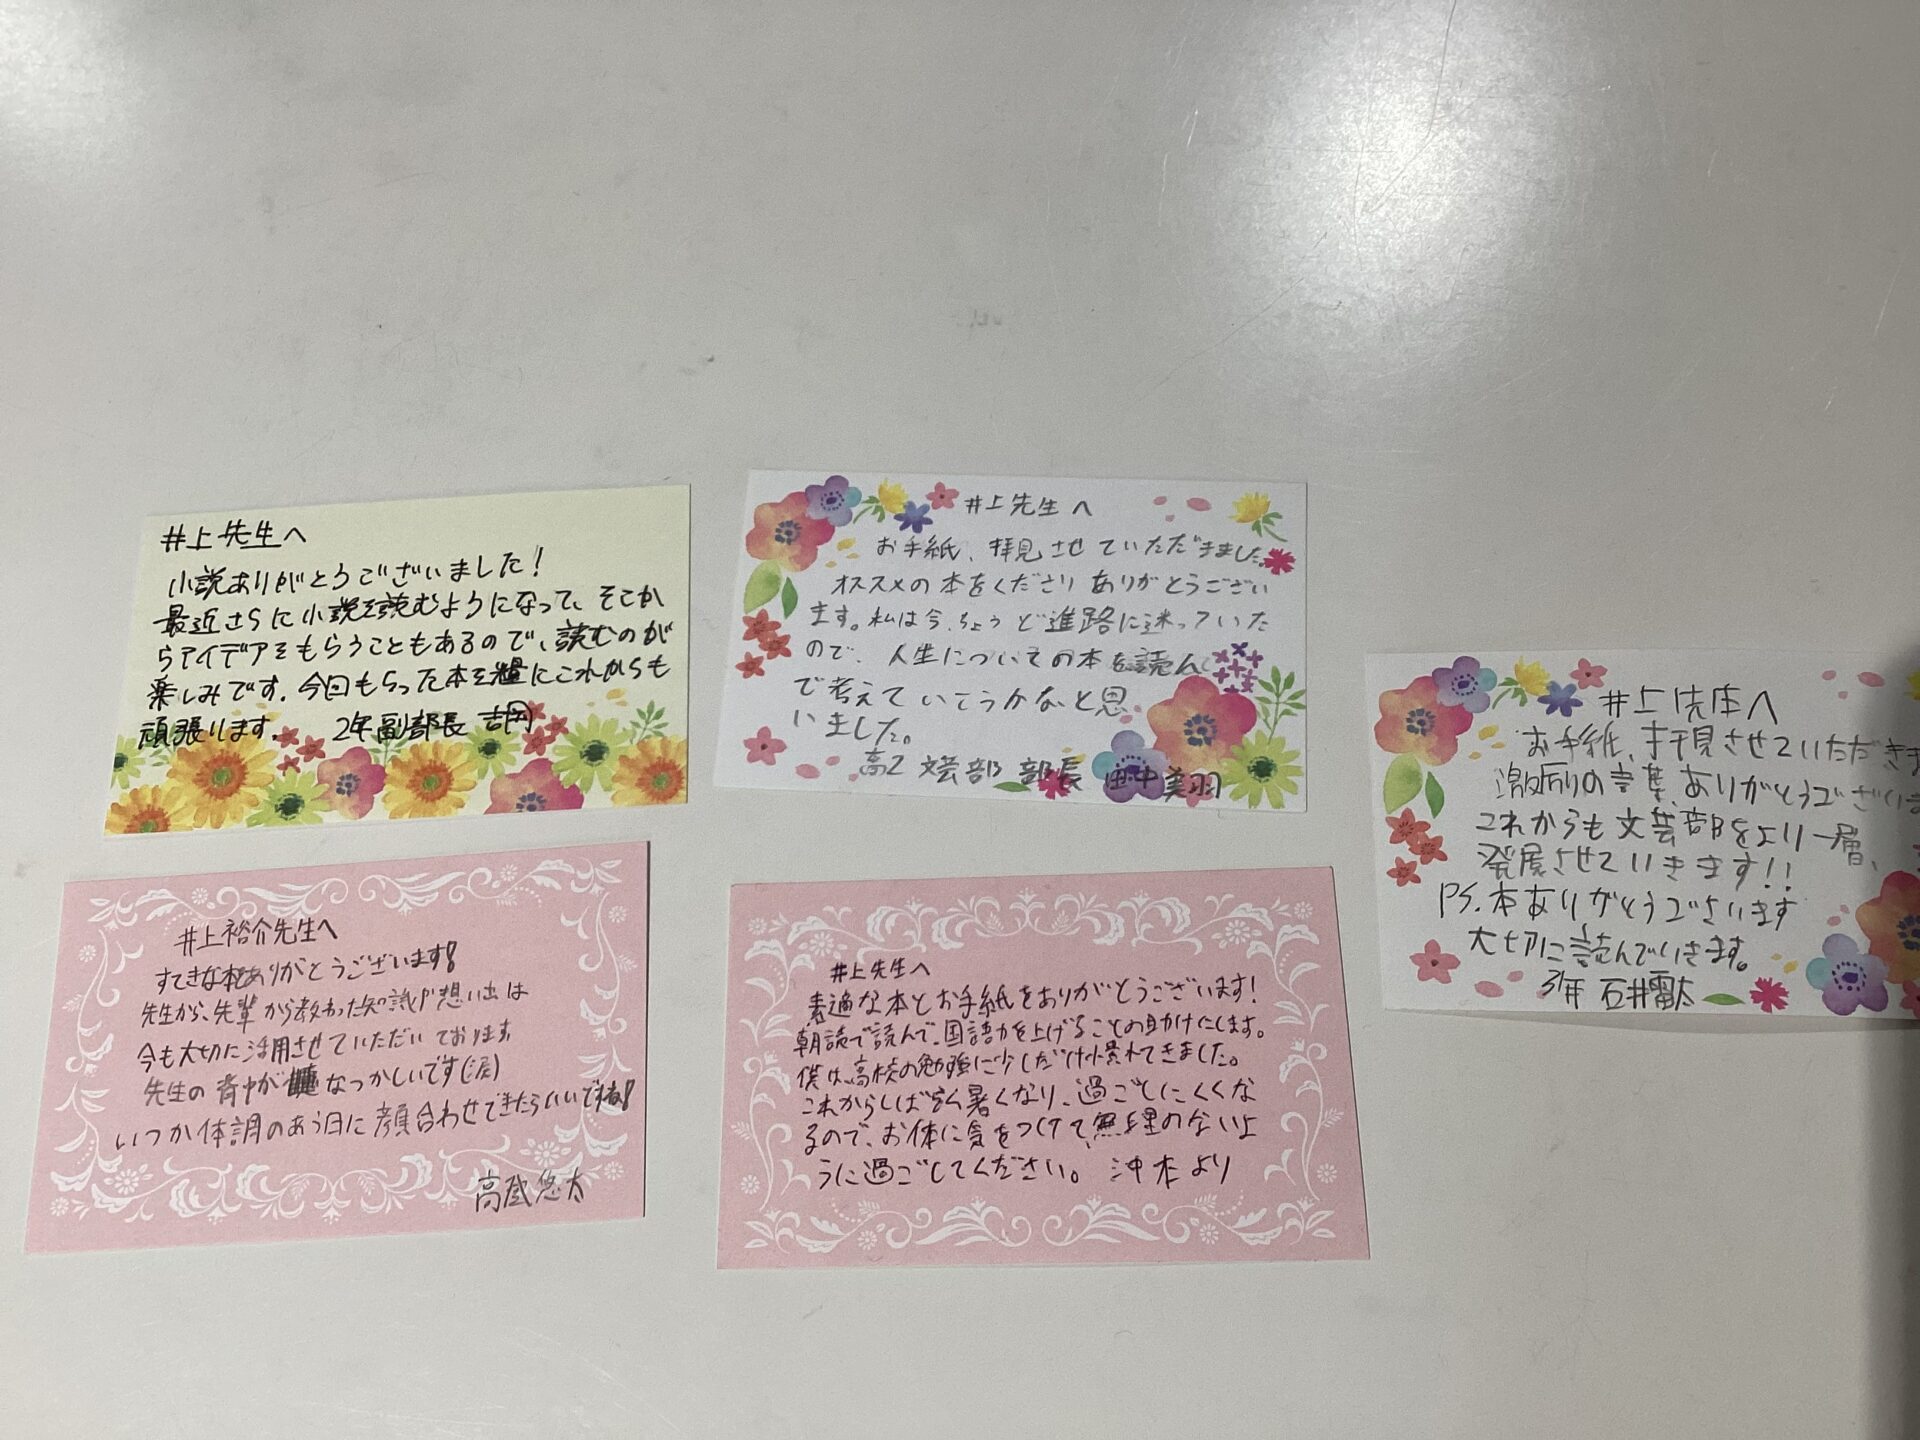 井上先生へ
小説ありがとうございました!
最近さらに小説を読むようになって、そこか
らアイデアをもらうこともあるので、読むのが
楽しみです。今回もらった本を糧にこれからも
頑張ります。 2年副部長 吉岡
井上先生へ
お手紙、拝見させていただきました。
オススメの本をくださりありがとうござい
ます。私は今、ちょうど進路に迷っていた
ので、人生についての本を読ん
で考えていこうかなと思
いました。
高2 文芸部 部長 田中美羽
井上先生へ
お手紙、拝見させていただきま
激励の言葉、ありがとうございま
これからも文芸部をより一層、
発展させていきます!!
PS.本ありがとうございます
大切に読んでいきます。
3年 石井雷太
井上裕介先生へ
すてきな本ありがとうございます!
先生から、先輩から教わった知識が想い出は
今も大切に活用させていただいております
先生の背中が なつかしいです(涙)
いつか体調のあう日に顔合わせできたらいいですね!
高蔵悠太
井上先生へ
素適な本とお手紙をありがとうございます!
朝読で読んで、国語力を上げることの助けにします。
僕は、高校の勉強に少しだけ慣れてきました。
これからしばらく暑くなり、過ごしにくくな
るので、お体に気をつけて、無理のないよ
うに過ごしてください。 沖本より